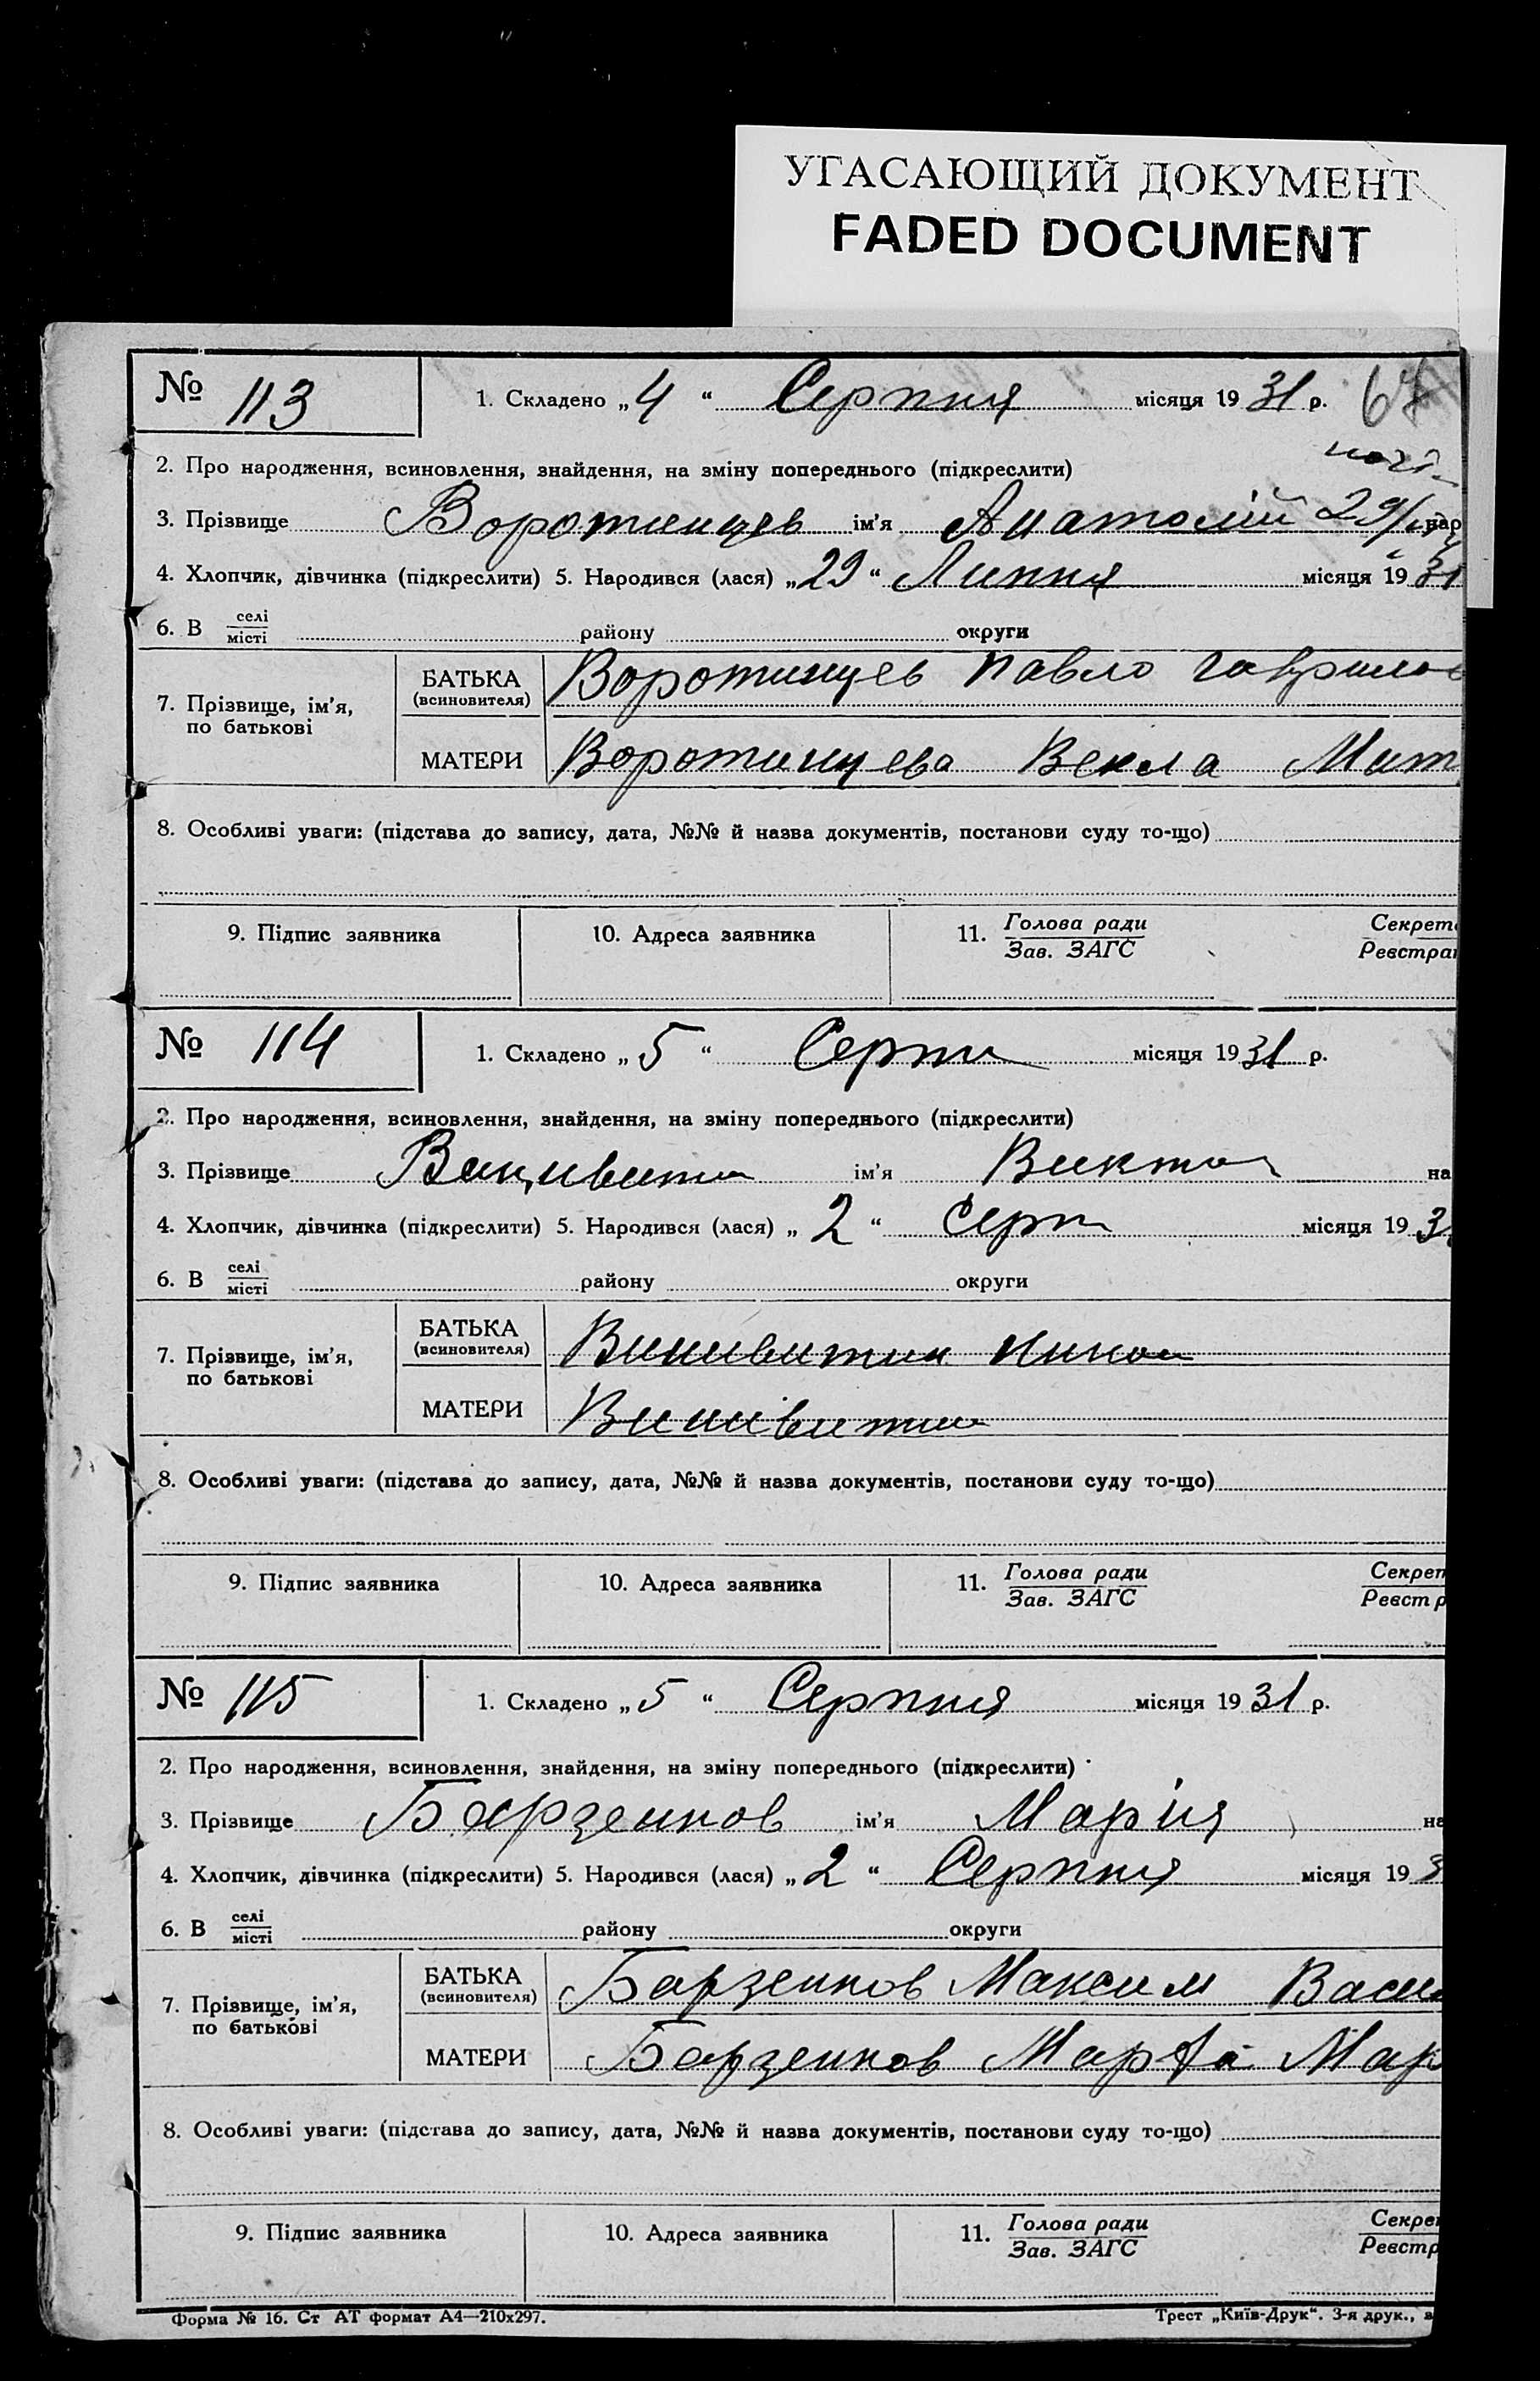 УГАСАЮЩИЙ ДОКУМЕНТ
FADED DOCUMENT
№ 113 1. Складено „4“ Серпня місяця 1931 р.
2. Про народження, всиновлення, знайдення, на зміну попереднього (підкреслити)
3. Прізвище Воротинцев ім'я Анатолій нар
4. Хлопчик, дівчинка (підкреслити) 5. Народився (лася) „29“ Липня місяця 1931
6. В селі місті району округи
7. Прізвище, ім'я, по батькові БАТЬКА (всиновителя) Воротинцев Павло Гаврилов
МАТЕРИ Воротинцева Векла Мит
8. Особливі уваги: (підстава до запису, дата, №№ й назва документів, постанови суду то-що)
9. Підпис заявника 10. Адреса заявника 11. Голова ради Зав. ЗАГС Секрет Реєстра
№ 114 1. Складено „5“ Серпн місяця 1931 р.
2. Про народження, всиновлення, знайдення, на зміну попереднього (підкреслити)
3. Прізвище ім'я Викто на
4. Хлопчик, дівчинка (підкреслити) 5. Народився (лася) „2“ Серп місяця 193
6. В селі місті району округи
7. Прізвище, ім'я, по батькові БАТЬКА (всиновителя)
МАТЕРИ
8. Особливі уваги: (підстава до запису, дата, №№ й назва документів, постанови суду то-що)
9. Підпис заявника 10. Адреса заявника 11. Голова ради Зав. ЗАГС Секрет Реєстр
№ 115 1. Складено „5“ Серпня місяця 1931 р.
2. Про народження, всиновлення, знайдення, на зміну попереднього (підкреслити)
3. Прізвище Барзенков ім'я Марія на
4. Хлопчик, дівчинка (підкреслити) 5. Народився (лася) „2“ Серпня місяця 193
6. В селі місті району округи
7. Прізвище, ім'я, по батькові БАТЬКА (всиновителя) Барзенков Максим Васи
МАТЕРИ Барзенков Марфа Мар
8. Особливі уваги: (підстава до запису, дата, №№ й назва документів, постанови суду то-що)
9. Підпис заявника 10. Адреса заявника 11. Голова ради Зав. ЗАГС Секре Реєстр
Форма № 16. Ст АТ формат А4—210x297. Трест „Київ-Друк“. 3-я друк., з